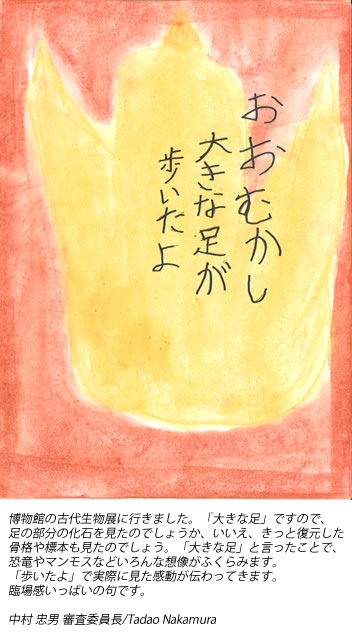 おおむかし
大きな足が
歩いたよ
博物館の古代生物展に行きました。「大きな足」ですので、
足の部分の化石を見たのでしょうか、いいえ、きっと復元した
骨格や標本も見たのでしょう。「大きな足」と言ったことで、
恐竜やマンモスなどいろんな想像がふくらみます。
「歩いたよ」で実際に見た感動が伝わってきます。
臨場感いっぱいの句です。
中村 忠男 審査委員長/Tadao Nakamura